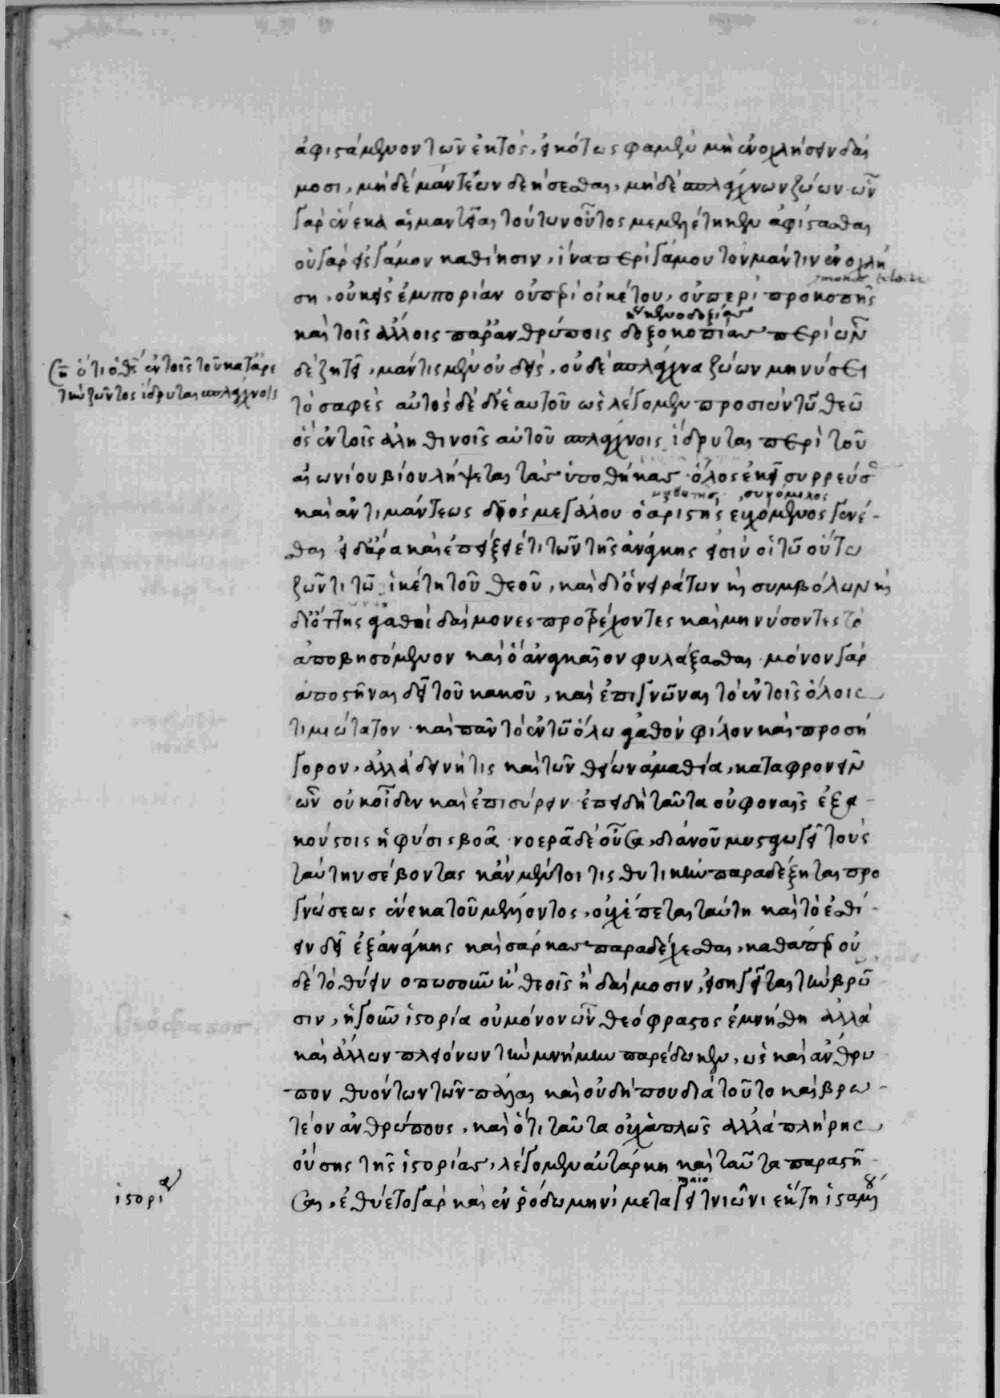 ἀφισάμενον τῶν ἐκτός, εἰκότως φαμὲν μὴ ἐνοχλήσειν δαί
μοσι, μηδὲ μάντεων δεήσεσθαι, μηδὲ σπλάγχνων ζώων· ὧν
γὰρ ἕνεκα αἱ μαντεῖαι τούτων οὗτος μεμελέτηκεν ἀφίστασθαι
οὐ γὰρ εἰς γάμον καθίησιν, ἵνα περὶ γάμου τὸν μάντιν ἐνοχλή
ση, οὐκ εἰς ἐμπορίαν οὐ περὶ οἰκέτου, οὐ περὶ προκοπῆς
ἢ κενοδοξίας
καὶ τοῖς ἄλλοις παρ' ἀνθρώποις δοξοκοπίας περὶ ὧν
δὲ ζητεῖ, μάντις μὲν οὐδεὶς, οὐδὲ σπλάγχνα ζώων μηνύσει
τὸ σαφές αὐτὸς δὲ δι' ἑαυτοῦ ὡς λέγομεν προσιὼν τῶ θεῶ
ὃς ἐν τοῖς ἀληθινοῖς αὐτοῦ σπλάγχνοις ἵδρυται περὶ τοῦ
αἰωνίου βίου λήψεται τὰς ὑποθήκας· ὅλος ἐκεῖ συρρεύσ
καὶ ἀντὶ μάντεως διὸς μεγάλου ὀαριστὴς εὐχόμενος γενέ-
σθαι
ζῶντι τῶ ἱκέτη τοῦ θεοῦ, καὶ δι' ὀνειράτων καὶ συμβόλων καὶ
δι' ὄττης ἀγαθοὶ δαίμονες προτρέχοντες καὶ μηνύσοντες τὸ
ἀποβησόμενον καὶ ὃ ἀναγκαῖον φυλάξασθαι· μόνον γὰρ
ἀποστῆναι δεῖ τοῦ κακοῦ, καὶ ἐπιγνῶναι τὸ ἐν τοῖς ὅλοις
τιμιώτατον· καὶ πᾶν τὸ ἐν τῶ ὅλω ἀγαθόν φίλον καὶ προσή
γορον, ἀλλὰ δεινή τις καὶ τῶν θείων ἀμαθία, καταφρονεῖν
ὧν οὐκ οἶδεν καὶ ἐπισύρειν· ἐπειδὴ ταῦτα οὐ φοναῖς ἐξα-
κούστοις ἡ φύσις βοᾶ· νοερὰ δὲ οὖσα, διὰ νοῦ μυσταγωγεῖ τοὺς
ταύτην σέβοντας κἂν μέντοι τις θυτικὴν παραδέξηται προ
γνώσεως ἕνεκα τοῦ μέλλοντος, οὐχ ἕπεται ταύτη καὶ τὸ ἐσθί-
ειν δεῖν ἐξ ἀνάγκης καὶ σάρκας παραδέχεσθαι, καθάπερ οὐ
δὲ τὸ θύειν ὁπωσοῦν ἢ θεοῖς ἢ δαίμοσιν, εἰσηγεῖται τὴν βρῶ
σιν, ἡ γοῦν ἱστορία οὐ μόνον ὧν θεόφραστος ἐμνήσθη ἀλλὰ
καὶ ἄλλων πλειόνων τὴν μνήμην παρέδωκεν, ὡς καὶ ἄνθρω
πον θυόντων τῶν πάλαι καὶ οὐ δήπου διὰ τοῦτο καὶ βρω-
τέον ἀνθρώπους, καὶ ὅτι ταῦτα οὐχ ἁπλῶς ἀλλὰ πλήρης
οὔσης τῆς ἱστορίας, λέγομεν αὐτάρκη καὶ ταῦτα παραστῆ-
σαι, ἐθύετο γὰρ καὶ ἐν ῥόδω μηνὶ μεταγειτνιῶνι ἕκτη ἱσταμέ
ὅτι ὁ θεὸς ἐν τοῖς τοῦ κατ' ἀρε
τὴν ζῶντος ἵδρυται σπλάγχνοις
ἱστορία